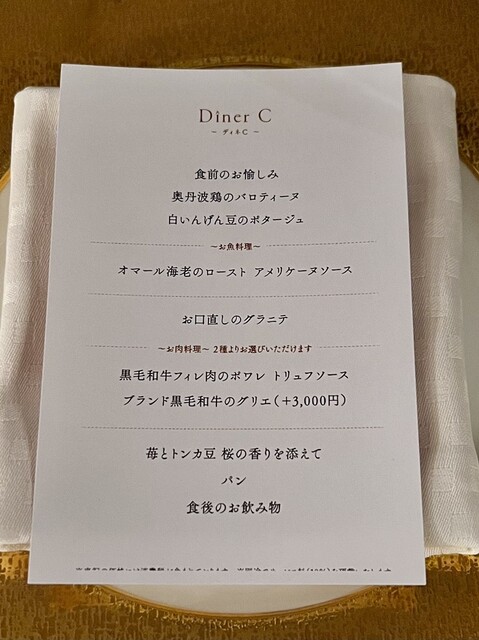 Dîner C
～ ディネC ～
食前のお愉しみ
奥丹波鶏のバロティーヌ
白いんげん豆のポタージュ
～お魚料理～
オマール海老のロースト アメリケーヌソース
お口直しのグラニテ
～お肉料理～ 2種よりお選びいただけます
黒毛和牛フィレ肉のポワレ トリュフソース
ブランド黒毛和牛のグリエ(＋3,000円)
苺とトンカ豆 桜の香りを添えて
パン
食後のお飲み物